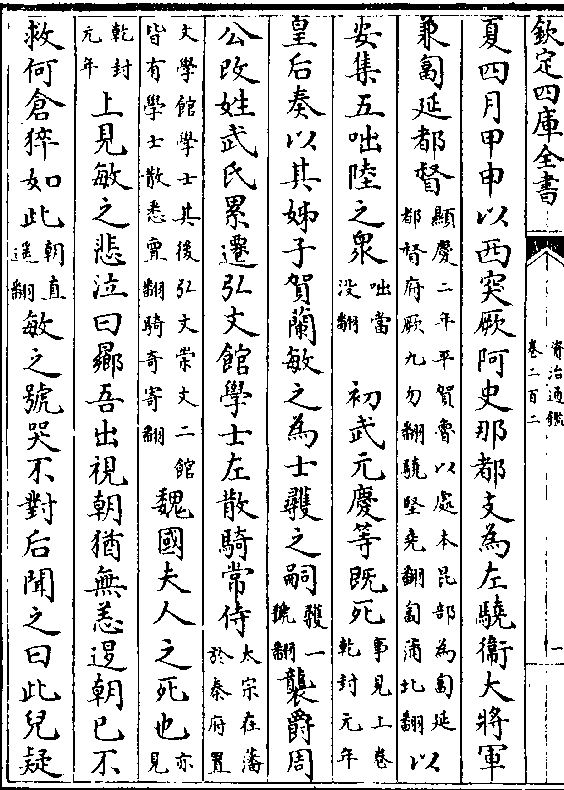 欽定四庫全書
資治通鑑
卷二百二
一
夏四月甲申以西突厥阿史那都支為左驍衛大將軍
兼匐延都督顯慶二年平賀魯以處木昆部為匐延都督府厥九勿翻驍堅堯翻匐蒲北翻以
安集五咄陸之衆咄當没翻 初武元慶等既死事見上卷乾封元年
皇后奏以其姊子賀蘭敏之為士彠之嗣彠一虢翻襲爵周
公改姓武氏累遷弘文館學士左散騎常侍太宗在藩於秦府置
文學館學士其後弘文崇文二館皆有學士散悉亶翻騎奇寄翻魏國夫人之死也亦見
乾封元年上見敏之悲泣曰曏吾出視朝猶無恙退朝已不
救何倉猝如此朝直遥翻敏之號哭不對后聞之曰此兒疑